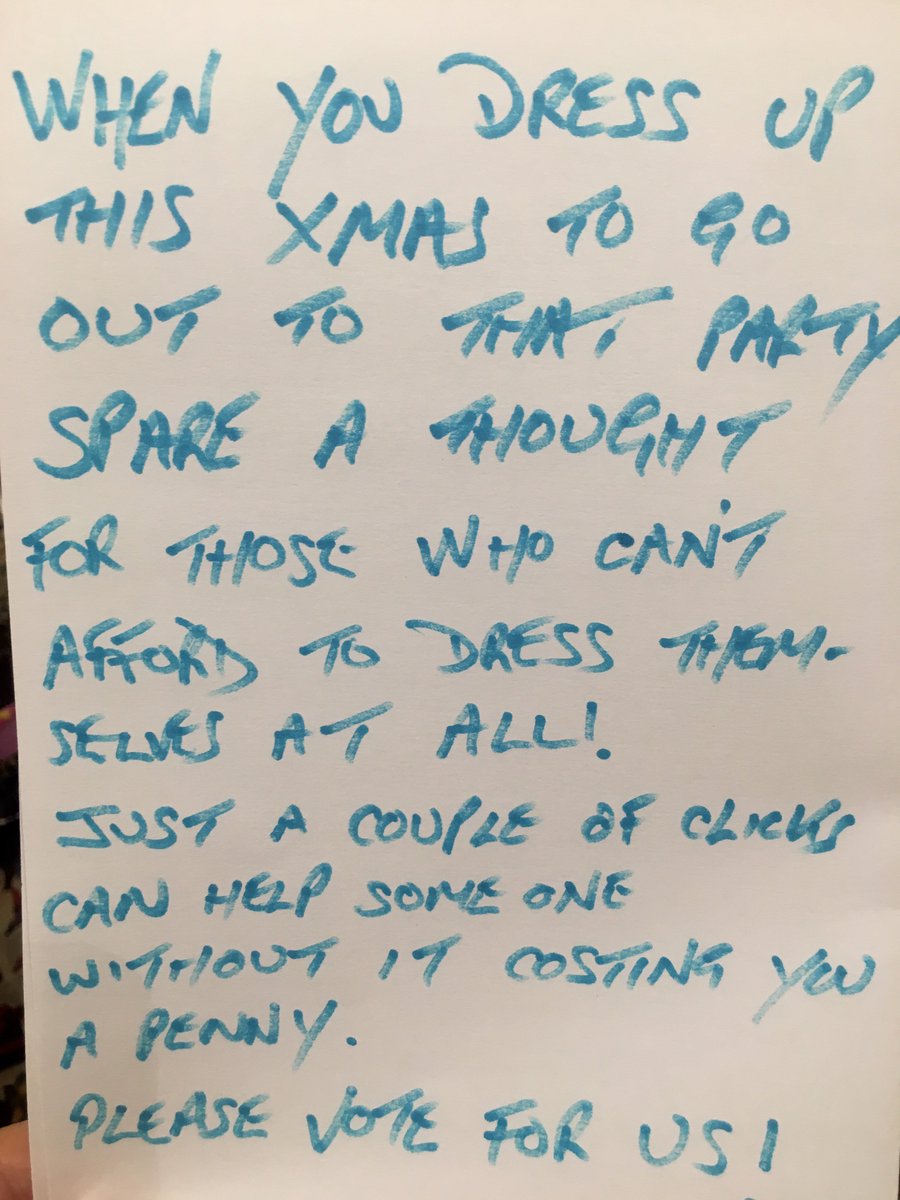 WHEN YOU DRESS UP
THIS XMAS TO GO
OUT TO THAT PARTY
SPARE A THOUGHT
FOR THOSE WHO CAN'T
AFFORD TO DRESS THEM-
SELVES AT ALL!
JUST A COUPLE OF CLICKS
CAN HELP SOME ONE
WITHOUT IT COSTING YOU
A PENNY.
PLEASE VOTE FOR US!